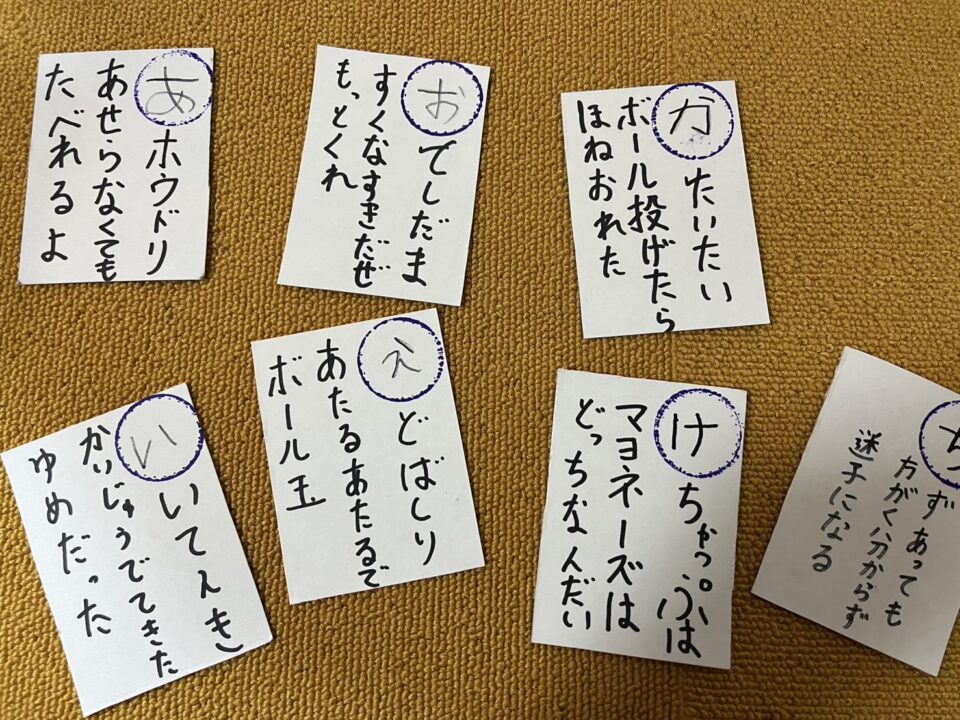 あホウドリ
あせらなくても
たべれるよ
おとしだま
すくなすぎだぜ
もっとくれ
かたいたい
ボール投げたら
ほねおれた
いいてんき
かいじゅうでてきた
ゆめだった
えどばしり
あたるあたるで
ボール玉
けちゃっぷは
マヨネーズは
どっちなんだい
ちずあっても
方がく分からず
迷子になる